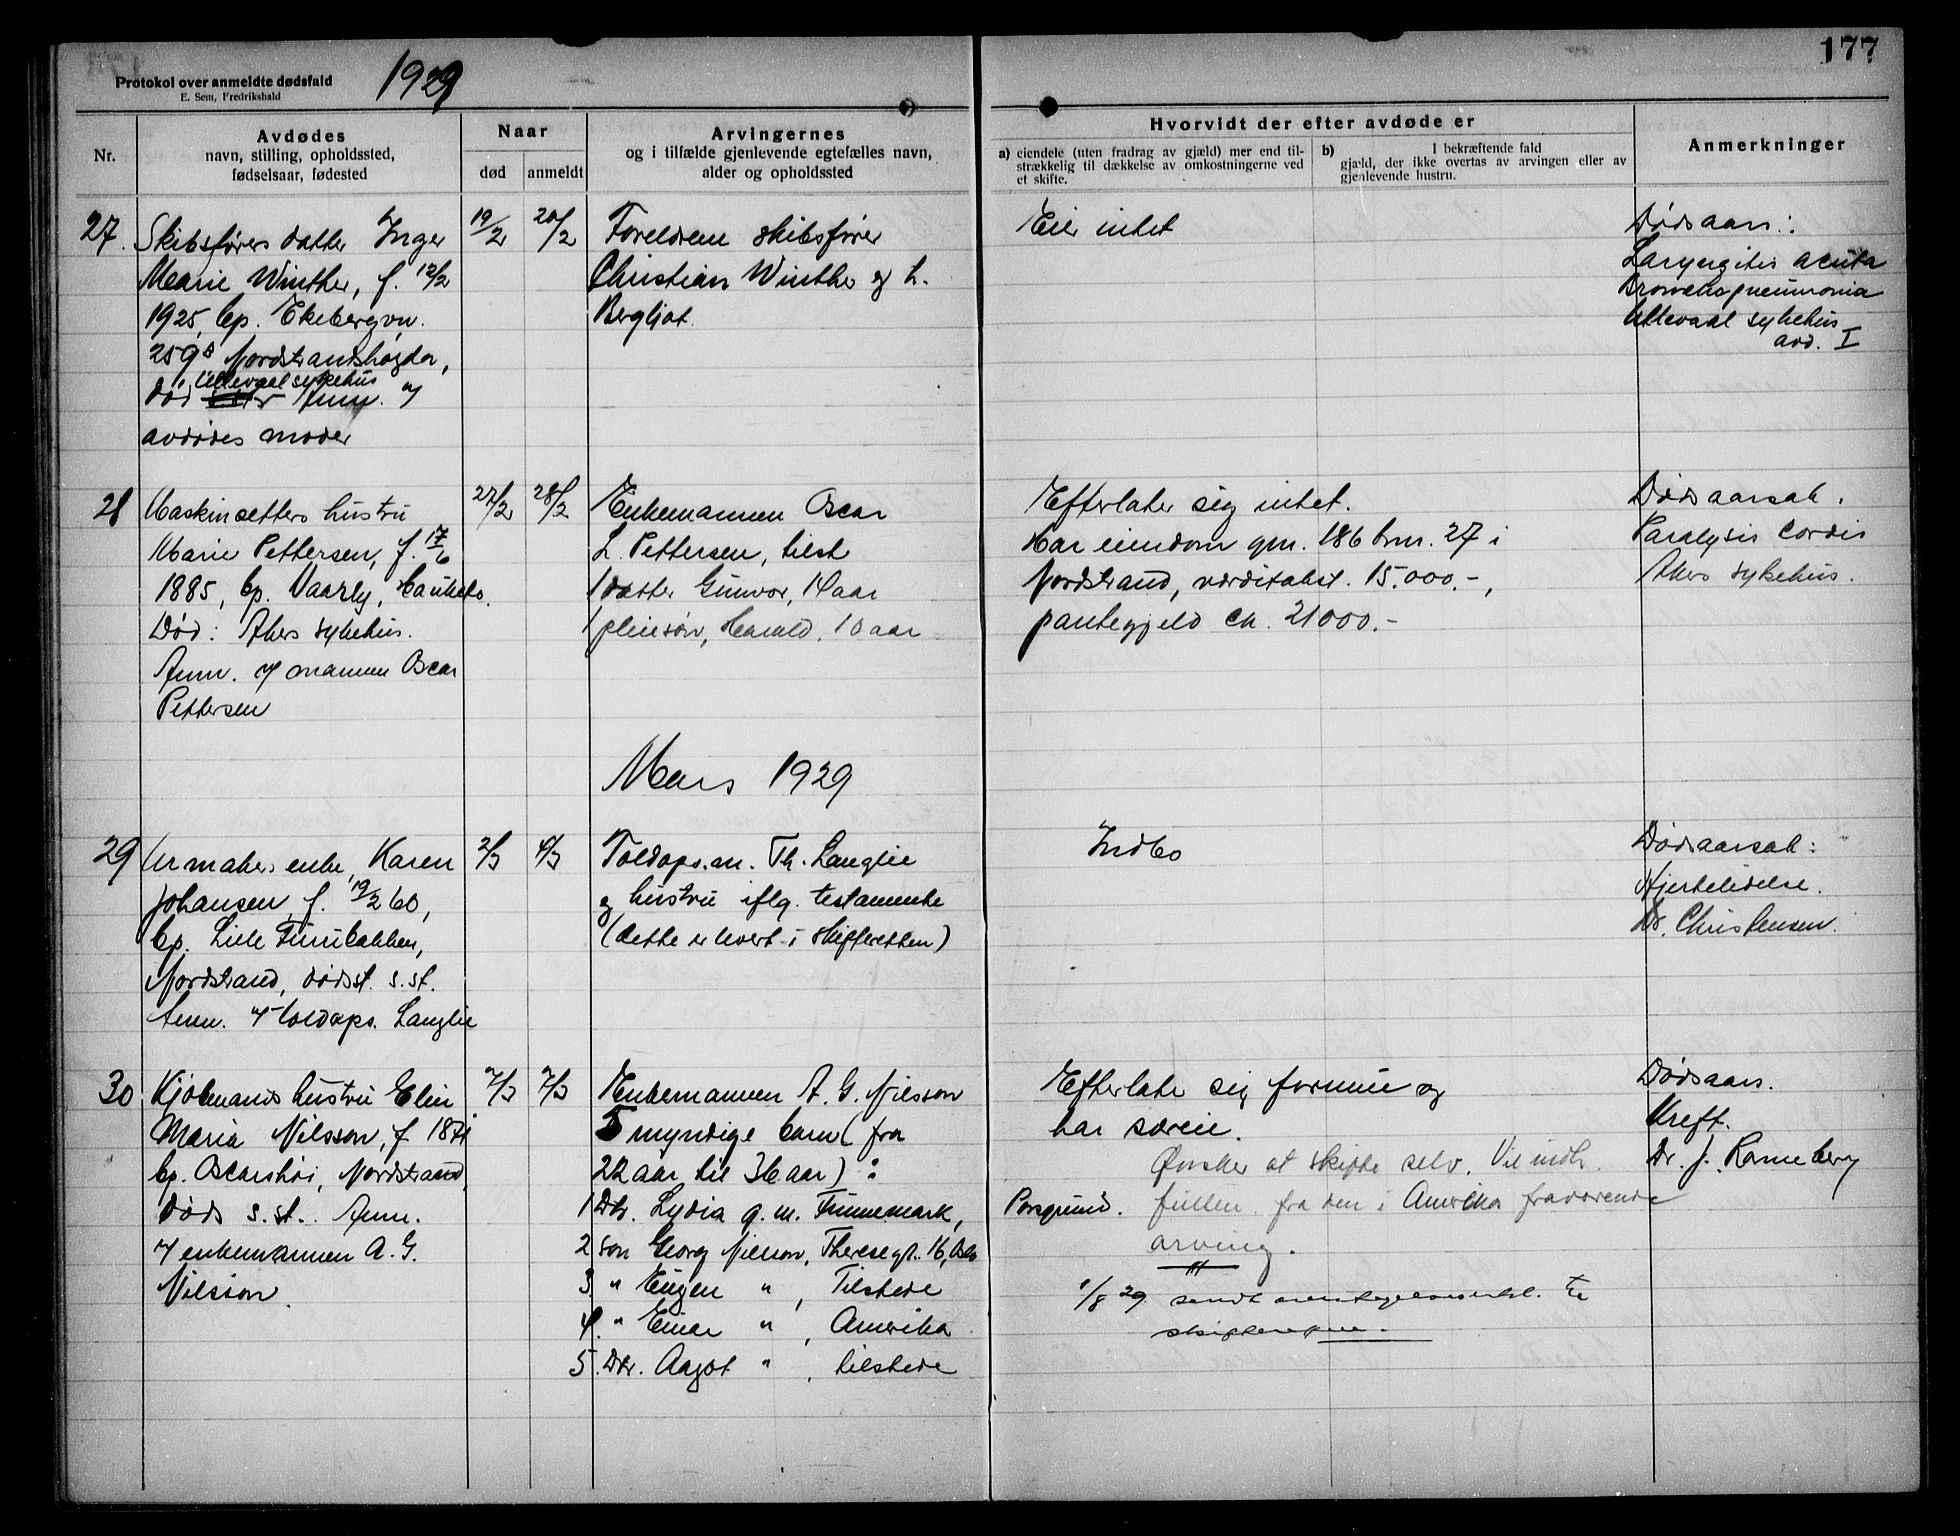 177
Protokol over anmeldte dødsfald
E. Sem, Fredrikshald
1929
Nr.
Avdødes
navn, stilling, opholdssted,
fødselsaar, fødested
Naar
død
anmeldt
Arvingernes
og i tilfælde gjenlevende egtefælles navn,
alder og opholdssted
Hvorvidt der efter avdøde er
a) eiendele (uten fradrag av gjæld) mer end til-
strækkelig til dækkelse av omkostningerne ved
et skifte.
b) I bekræftende fald
gjæld, der ikke overtas av arvingen eller av
gjenlevende hustru.
Anmerkninger
27.
Skibsførers datter Inger
Marie Winther, f. 12/2
1925, bp. Ekebergvn.
259 Nordstrandshøgda,
Ullevaal sykehus
død Anm. af
avdødes moder
19/2
20/2
Foreldrene skibsfører
Christian Winther og h.
Bergljot.
Eier intet
Dødsaars.:
Laryngitis acuta
Bronchopneumonia
Ullevaal sykehus
avd. I
28
Maskinsetters hustru
Marie Pettersen, f. 17/6
1885, bp. Vaarly, Hauketo.
Død: Akers sykehus.
Anm. af mannen Oscar
Pettersen
27/2
28/2
Enkemannen Oscar
L. Pettersen, tilst
1 datter Gunvor, 14 aar
1 pleiesøn, Harald, 10 aar
Efterlater sig intet.
Har eiendom gn. 186 brn. 27 i
Nordstrand, værditakst. 15.000.-,
pantegjeld ca. 21000.-
Dødsaarsak.
Paralysis Cordis
Akers sykehus.
Mars 1929
29
Urmakers enke, Karen
Johansen, f. 19/2 60,
bp. Lille Furubakken,
Nordstrand, dødsst. s. st.
Anm. af toldops. Langlie
2/3
4/3
Toldops.m. Th. Langlie
og hustru iflg. testamente
(dette er levert i skifteretten)
Indbo
Dødsaarsak:
Hjertelidelse.
Dr. Christensen.
30
Kjøbmands hustru Elin
Maria Nilsson, f 1871
bp. Oscarshøi, Nordstrand,
Døds s. st. Anm.
af enkemannen A. G.
Nilsson.
7/3
Enkemannen A. G. Nilsson
5 myndige barn (fra
22 aar til 36 aar):
1 Dtr. Lydia g. m. Finnemark,
Porsgrund.
2 søn Georg Nilsson, Theresegt. 16, Oslo
3 " Eugen " , Tilstede
4. " Einar " , Amerika
5. Dtr. Aagot " , tilstede
Efterlater sig formue og
har særeie.
Ønsker at skifte selv. Vil indh.
fullm. fra den i Amerika fraværende
arving.
1/8 29 sendt til
Dødsaars.
Kreft.
Dr. J. Ramberg